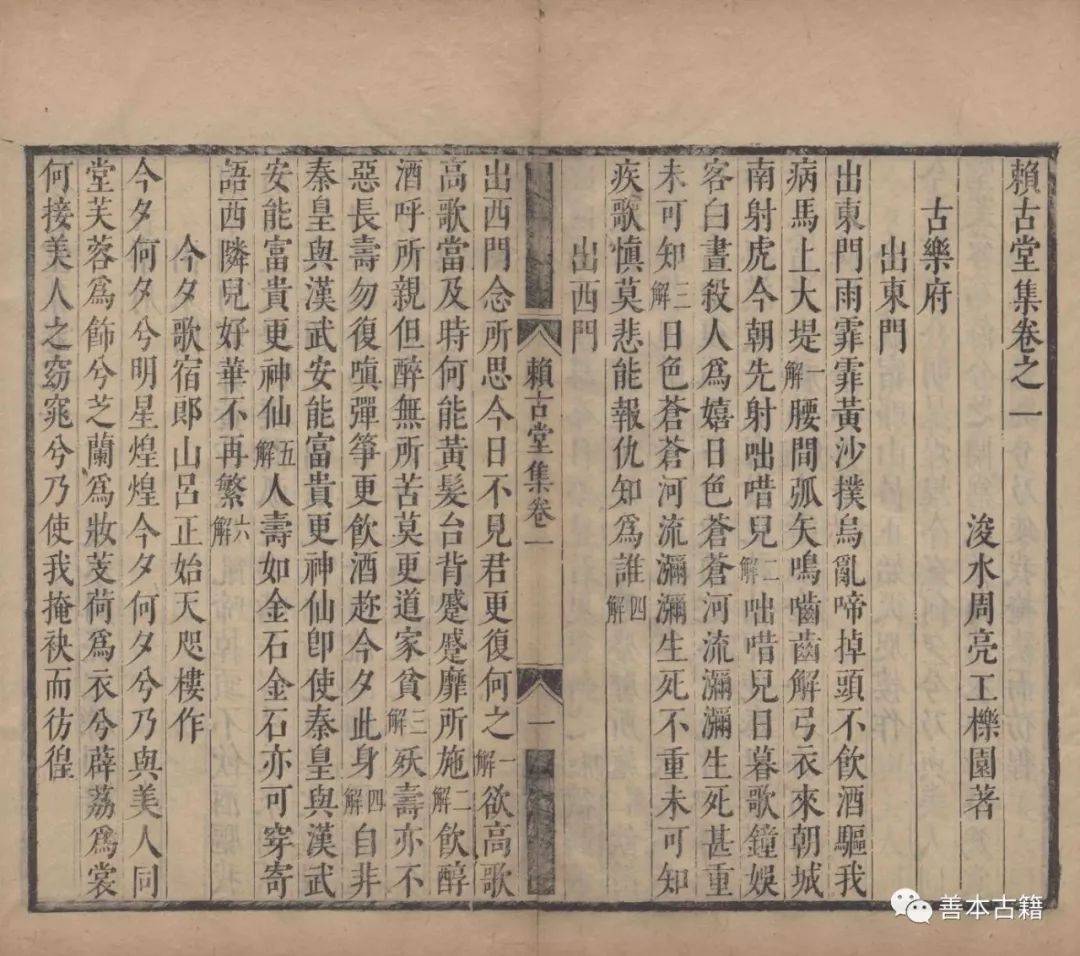 賴古堂集卷之一
浚水周亮工櫟園著
古樂府
出東門
出東門雨霏霏黃沙撲烏亂啼掉頭不飲酒驅我
病馬上大堤一解腰間弧矢鳴嚙齒解弓衣來朝城
南射虎今朝先射咄唶兒二解咄唶兒日暮歌鐘娛
客白晝殺人為嬉日色蒼蒼河流瀰瀰生死甚重
未可知三解日色蒼蒼河流瀰瀰生死不重未可知
疾歌慎莫悲能報仇知爲誰四解
出西門
賴古堂集卷一
一
出西門念所思今日不見君更復何之一解欲高歌
高歌當及時何能黃髮台背蹙蹙靡所施二解飲醇
酒呼所親但醉無所苦莫更道家貧三解殀壽亦不
惡長壽勿復嗔彈箏更飲酒趁今夕此身四解自非
秦皇與漢武安能富貴更神仙卽使秦皇與漢武
安能富貴更神仙五解人壽如金石金石亦可穿寄
語西隣兒好華不再繁六解
今夕歌宿郎山呂正始天咫樓作
今夕何夕兮明星煌煌今夕何夕兮乃與美人同
堂芙蓉爲飾兮芝蘭爲妝芰荷爲衣兮薜荔爲裳
何接美人之窈窕兮乃使我掩袂而彷徨
善本古籍